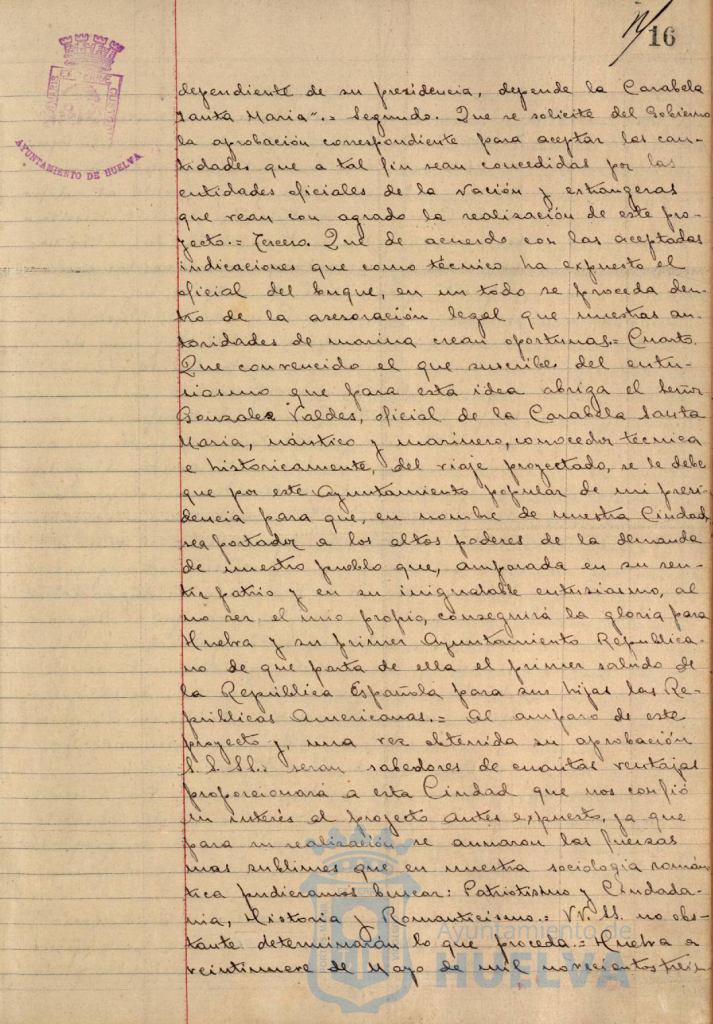 16
AYUNTAMIENTO DE HUELVA
dependiente de su presidencia, depende la Carabela
Santa Maria".= Segundo. Que se solicite del Gobierno
la aprobación correspondiente para aceptar las can-
tidades que a tal fin sean concedidas por las
entidades oficiales de la Nación y estrangeras
que vean con agrado la realización de este pro-
yecto.= Tercero. Que de acuerdo con las aceptadas
indicaciones que como técnico ha expuesto el
oficial del buque, en un todo se proceda den-
tro de la asesoración legal que nuestras au-
toridades de marina crean oportunas.= Cuarto.
Que convencido el que suscribe del entu-
siasmo que para esta idea abriga el Señor
Gonzalez Valdes, oficial de la Carabela Santa
Maria, náutico y marinero, conocedor técnica
e historicamente, del viaje proyectado, se le debe
que por este Ayuntamiento popular de mi presi-
dencia para que, en nombre de nuestra Ciudad,
sea portador a los altos poderes de la demanda
de nuestro pueblo que, amparada en su sen-
tir patrio y en su inigualable entusiasmo, al
no ser el mio propio, conseguirá la gloria para
Huelva y su primer Ayuntamiento Republica-
no de que parta de ella el primer saludo de
la República Española para sus hijas las Re-
públicas Americanas.= Al amparo de este
proyecto y, una vez obtenida su aprobación
S.S. SS. seran sabedores de cuantas ventajas
proporcionará a esta Ciudad que nos confió
su interés al proyecto antes expuesto, ya que
para su realización se aunaron las fuerzas
mas sublimes que en nuestra sociologia román-
tica pudieramos buscar: Patriotismo y Ciudada-
nia, Historia y Romanticismo.= VV. SS. no obs-
tante determinarán lo que proceda.= Huelva a
veintinueve de Mayo de mil novecientos trein-
Ayuntamiento de
HUELVA